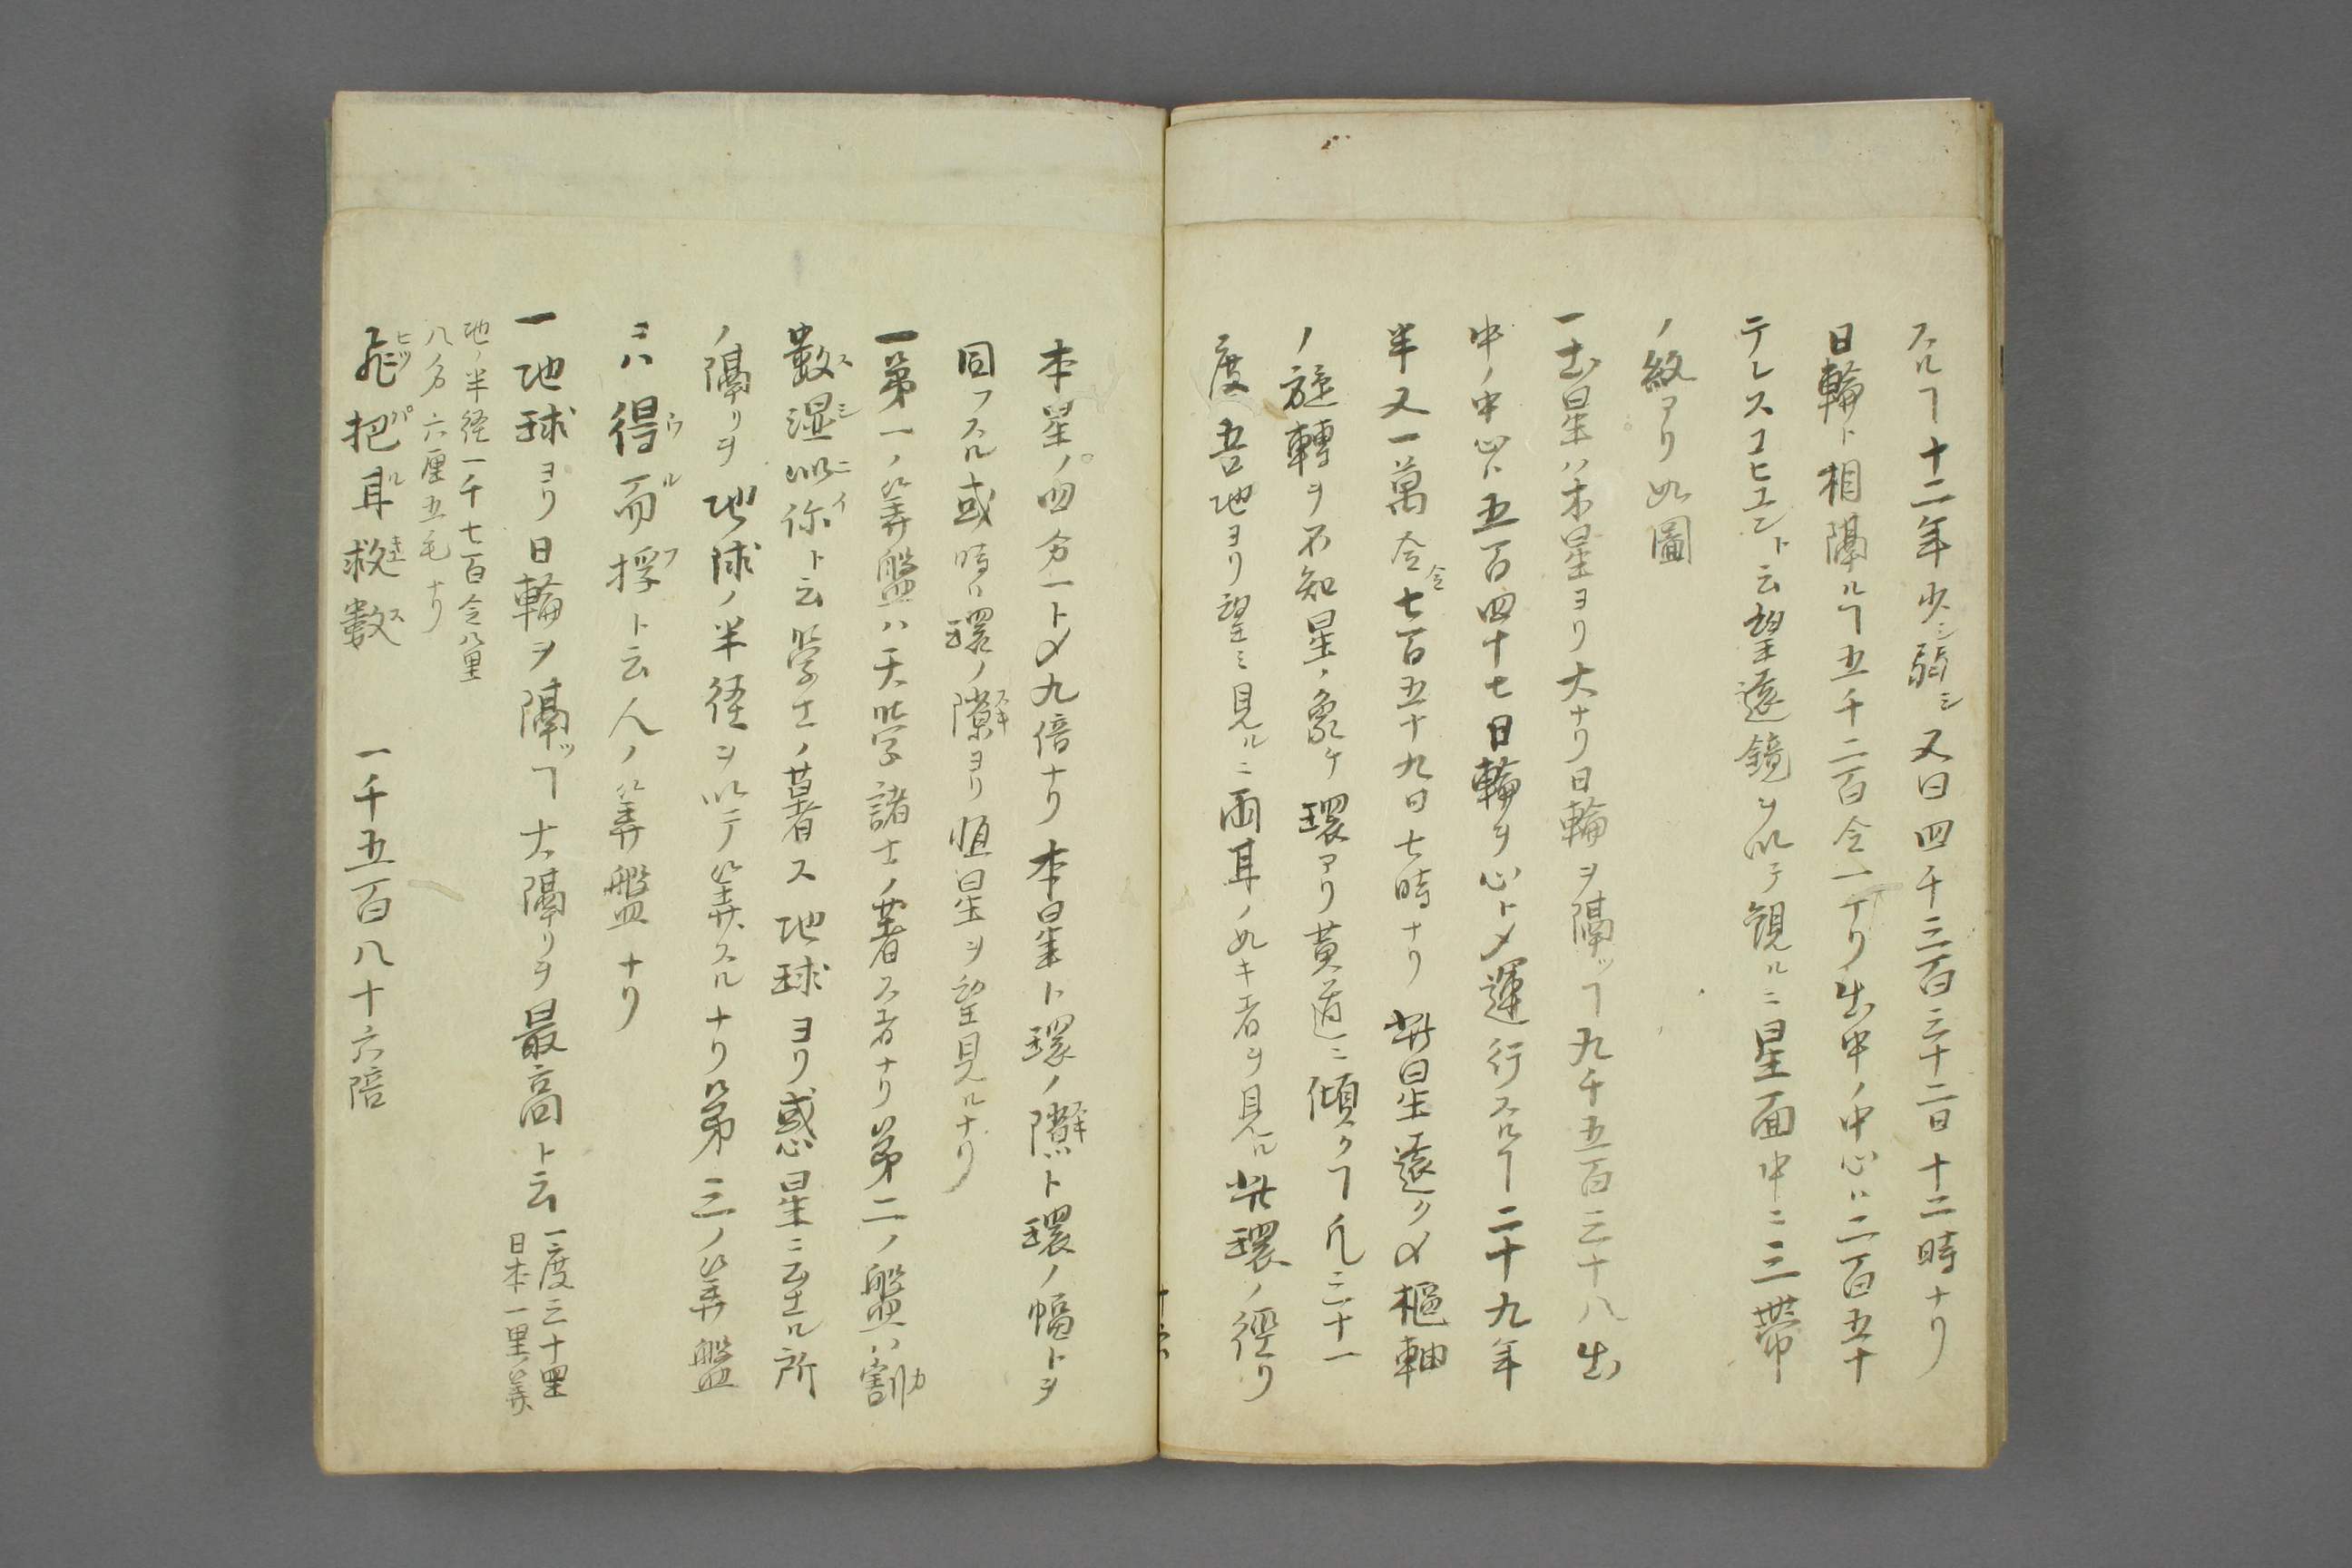 スルヿ十二年少シ弱シ又曰四千三百三十二日十二時ナリ
日輪ト相隔ルヿ五千二百令一ナリ出中ノ中心ハ二百五十
テレスコヒユント云望遠鏡ヲ以テ覗ルニ星面中ニ三帯
ノ紋アリ如圖
一土星ハ木星ヨリ大ナリ日輪ヲ隔ツヿ九千五百三十八出
中ノ中心ト五百四十七日輪ヲ心トメ運行スルヿ二十九年
半又一萬令七百五十九日七時ナリ此星遠クメ樞軸
ノ旋轉ヲ不知星ノ象ケ環アリ黄道ニ傾クヿ凡三十一
度吾地ヨリ望ミ見ルニ両耳ノ如キ者ヲ見ル此環ノ徑リ
本星ノ四分一トメ九倍ナリ本星ト環ノ隙ト環ノ幅トヲ
同フスル或時ハ環ノ隙ヨリ恒星ヲ望見ルナリ
一第一ノ筭盤ハ天学諸士ノ著ス者ナリ第二ノ盤ハ割
數湿以弥ト云学士ノ著ス地球ヨリ惑星ニ至ル所
ノ隔リヲ地球ノ半径ヲ以テ筭スルナリ第三ノ筭盤
ハ得而捊ト云人ノ筭盤ナリ
一地球ヨリ日輪ヲ隔ツヿ大隔リヲ最高ト云
一度三十里
日本一里筭
地ノ半径一千七百令八里
八分六厘五毛ナリ
飛把耳救數 一千五百八十六陪